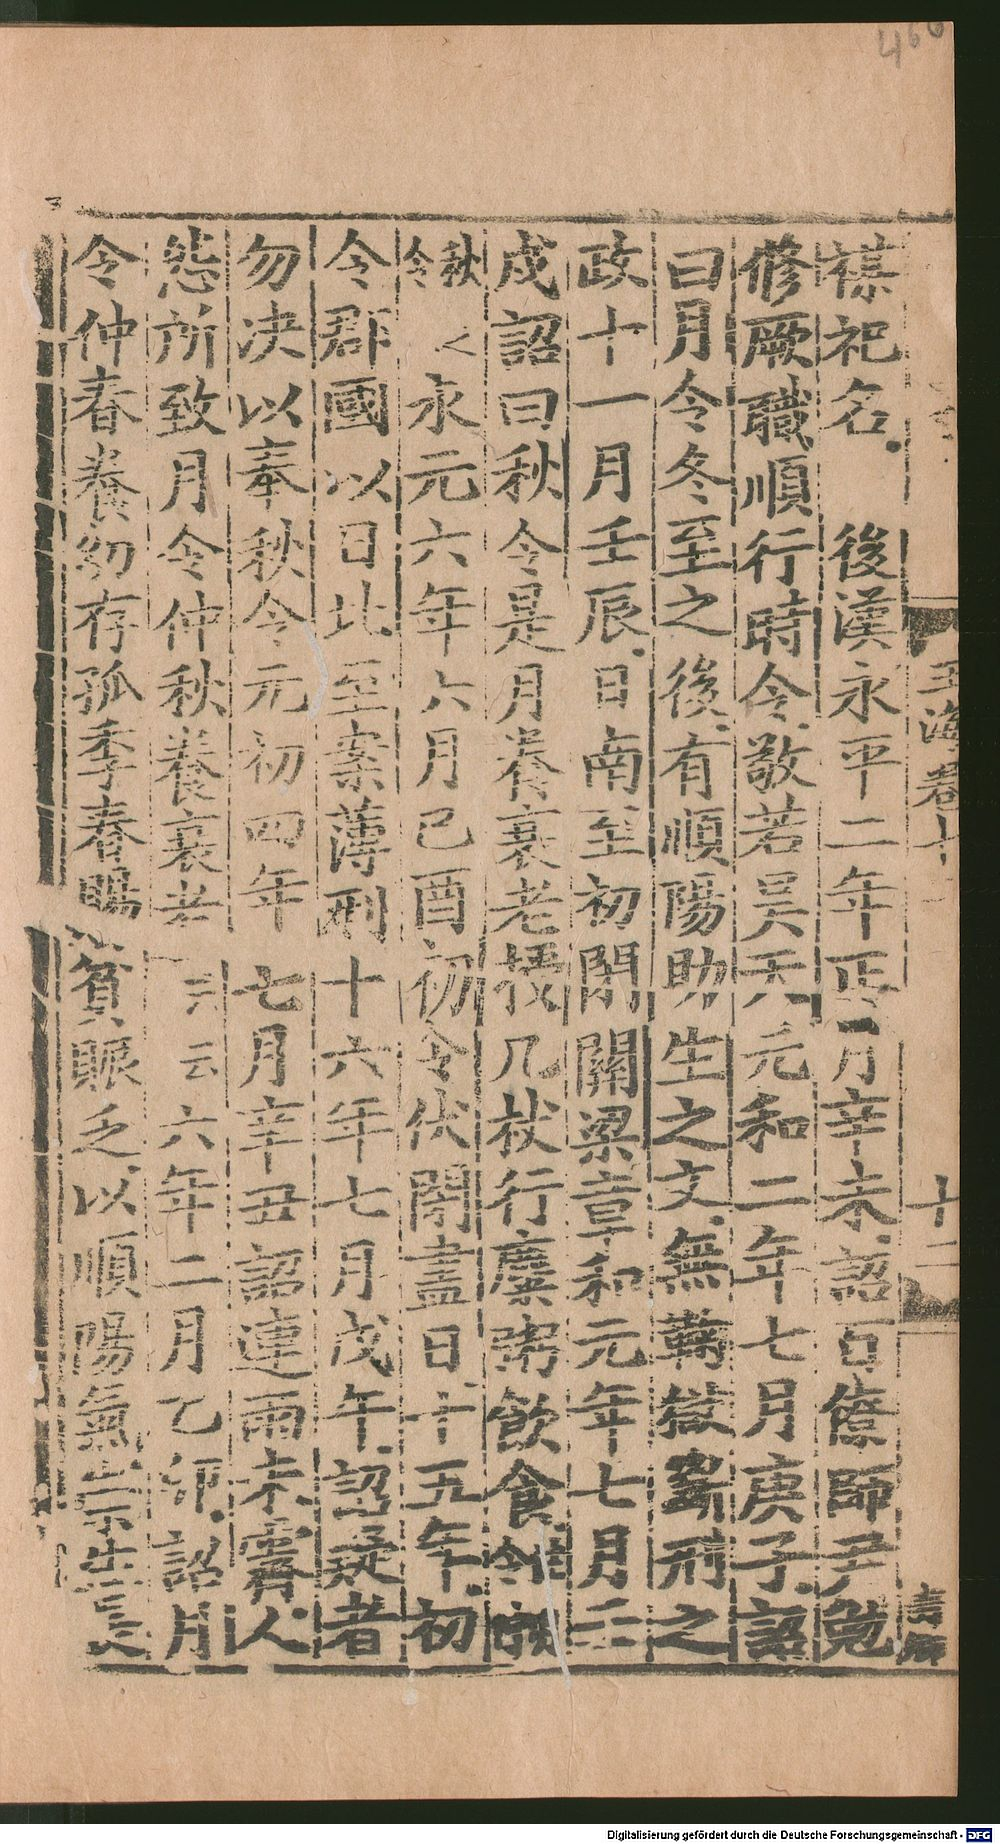 禖祀名 後漢永平二年正月辛未詔百僚師尹勉
修厥職順行時令敬若昊天元和二年七月庚子詔
曰月令冬至之後有順陽助生之文無鞫獄斷刑之
政十一月壬辰日南至初閉關梁章和元年七月壬
戍詔曰秋令是月養衰老授几杖行糜粥飲食
秋令 永元六年六月己酉初令伏閉盡日十五年初
令郡國以日北至案薄刑十六年七月戊午詔疑者
勿决以奉秋令元初四年七月辛丑詔連雨未霽人
怨所致月令仲秋養衰老云云六年二月乙卯詔月
令仲春養幼存孤季春賜貧賑乏以順陽氣崇生長
玉海卷十
十二
460
Digitalisierung gefördert durch die Deutsche Forschungsgemeinschaft - DFG